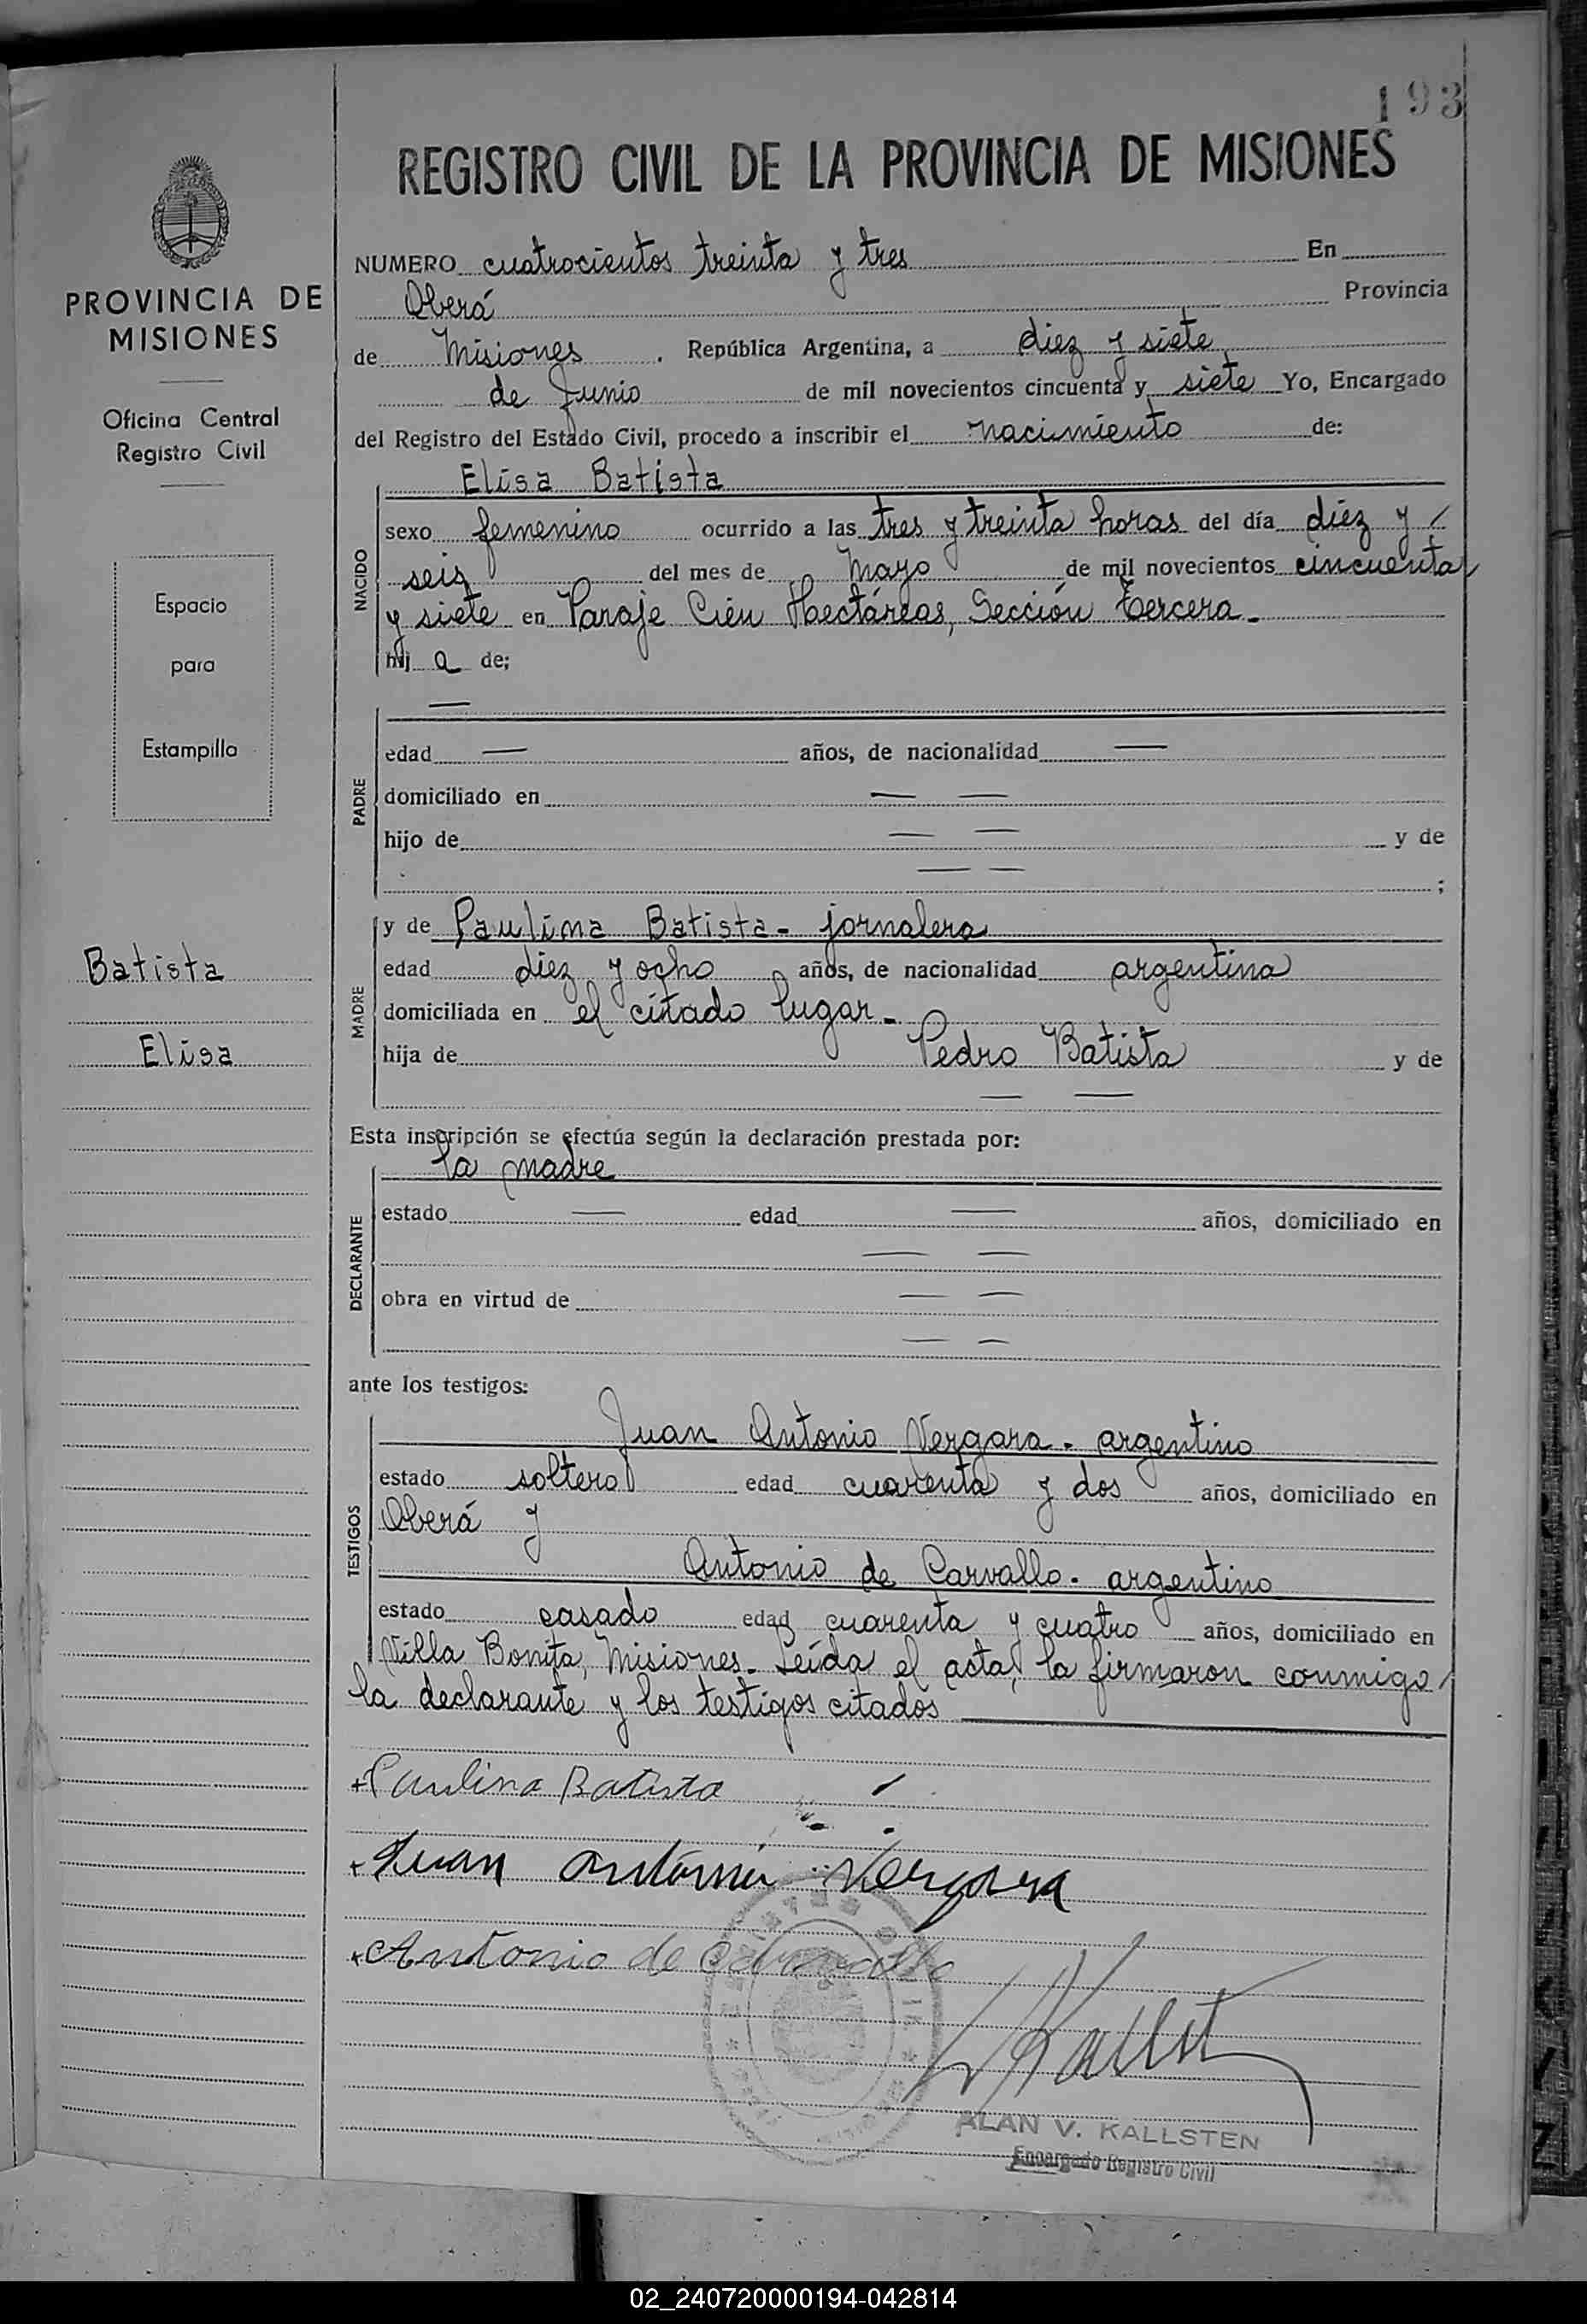 193
REGISTRO CIVIL DE LA PROVINCIA DE MISIONES
PROVINCIA DE
MISIONES
Oficina Central
Registro Civil
Espacio
para
Estampilla
Batista
Elisa
NUMERO cuatrocientos treinta y tres En
Oberá Provincia
de Misiones . República Argentina, a diez y siete
de Junio de mil novecientos cincuenta y siete Yo, Encargado
del Registro del Estado Civil, procedo a inscribir el nacimiento de:
NACIDO
Elisa Batista
sexo femenino ocurrido a las tres y treinta horas del día diez y /
seis del mes de Mayo de mil novecientos cincuenta /
y siete en Paraje Cien Hectáreas, Sección Tercera.-
hij a de;
PADRE
—
edad — años, de nacionalidad —
domiciliado en — —
hijo de — — y de
— — ;
MADRE
y de Paulina Batista - jornalera
edad diez y ocho años, de nacionalidad argentina
domiciliada en el citado lugar.-
hija de Pedro Batista y de
— —
Esta inscripción se efectúa según la declaración prestada por:
DECLARANTE
la madre
estado — edad — años, domiciliado en
— —
obra en virtud de — —
— —
ante los testigos:
TESTIGOS
Juan Antonio Vergara - argentino
estado soltero edad cuarenta y dos años, domiciliado en
Oberá y
Antonio de Carvallo - argentino
estado casado edad cuarenta y cuatro años, domiciliado en
Villa Bonita, Misiones.- Leída el acta, la firmaron conmigo /
la declarante y los testigos citados
+ Paulina Batista
+ Juan Antonio Vergara
+ Antonio de Carvallo
ALAN V. KALLSTEN
Encargado Registro Civil
02_240720000194-042814